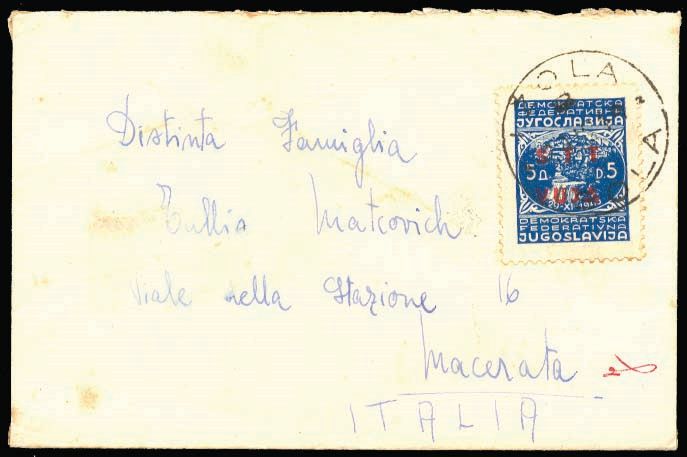 IZOLA
ДЕМОКРАТСКА
ФЕДЕРАТИВНА
ЈУГОСЛАВИЈА
S T T
5 Д. D. 5
VUJA
29-XI-1943
DEMOKRATSKA
FEDERATIVNA
JUGOSLAVIJA
Distinta Famiglia
Tullio Matcovich
Viale della Stazione 16
Macerata
ITALIA